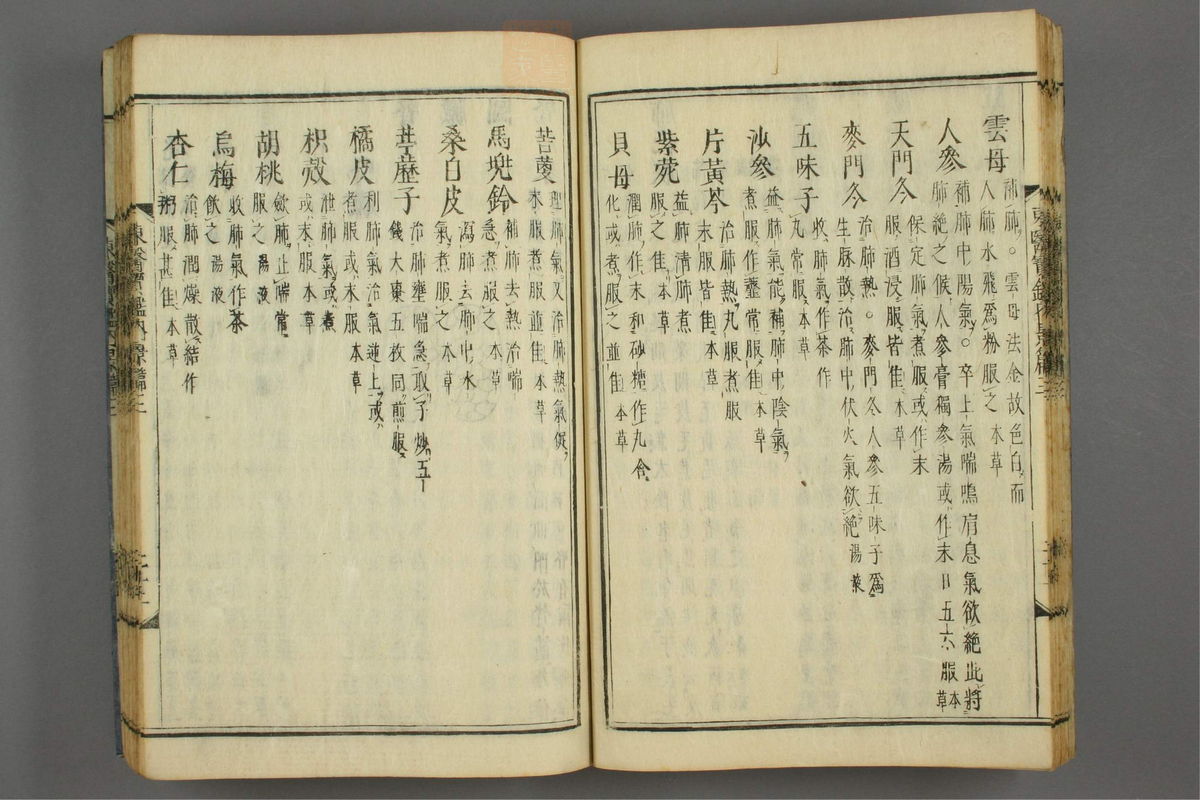 雲母
補肺。雲母法金故色白而
入肺水飛爲粉服之 本草
人參
補肺中陽氣。卒上氣喘鳴肩息氣欲絶此將
肺絶之候人參膏獨參湯或作末日五六服 本草
天門冬
保定肺氣煮服或作末
服酒浸服皆佳 本草
麥門冬
治肺熱。麥門冬人參五味子爲
生脉散治肺中伏火氣欲絶 湯藥
五味子
收肺氣作茶作
丸常服 本草
沙參
益肺氣能補肺中陰氣
煮服作虀常服佳 本草
片黃芩
治肺熱丸服煮服
末服皆佳 本草
紫菀
益肺清肺煮
服之佳 本草
貝母
潤肺作末和砂糖作丸含
化或煮服之並佳 本草
苦蔞
理肺氣又治肺熱氣促
末服煮服並佳 本草
馬兜鈴
補肺去熱治喘
急煮服之 本草
桑白皮
瀉肺去肺中水
氣煮服之 本草
葶藶子
治肺壅喘急取子炒五
錢大棗五枚同煎服
橘皮
利肺氣治氣逆上或
煮服或末服 本草
枳殼
泄肺氣或煮
或末服 本草
胡桃
斂肺止喘常
服之 湯液
烏梅
收肺氣作茶
飲之 湯液
杏仁
治肺潤燥散結作
粥服甚佳 本草